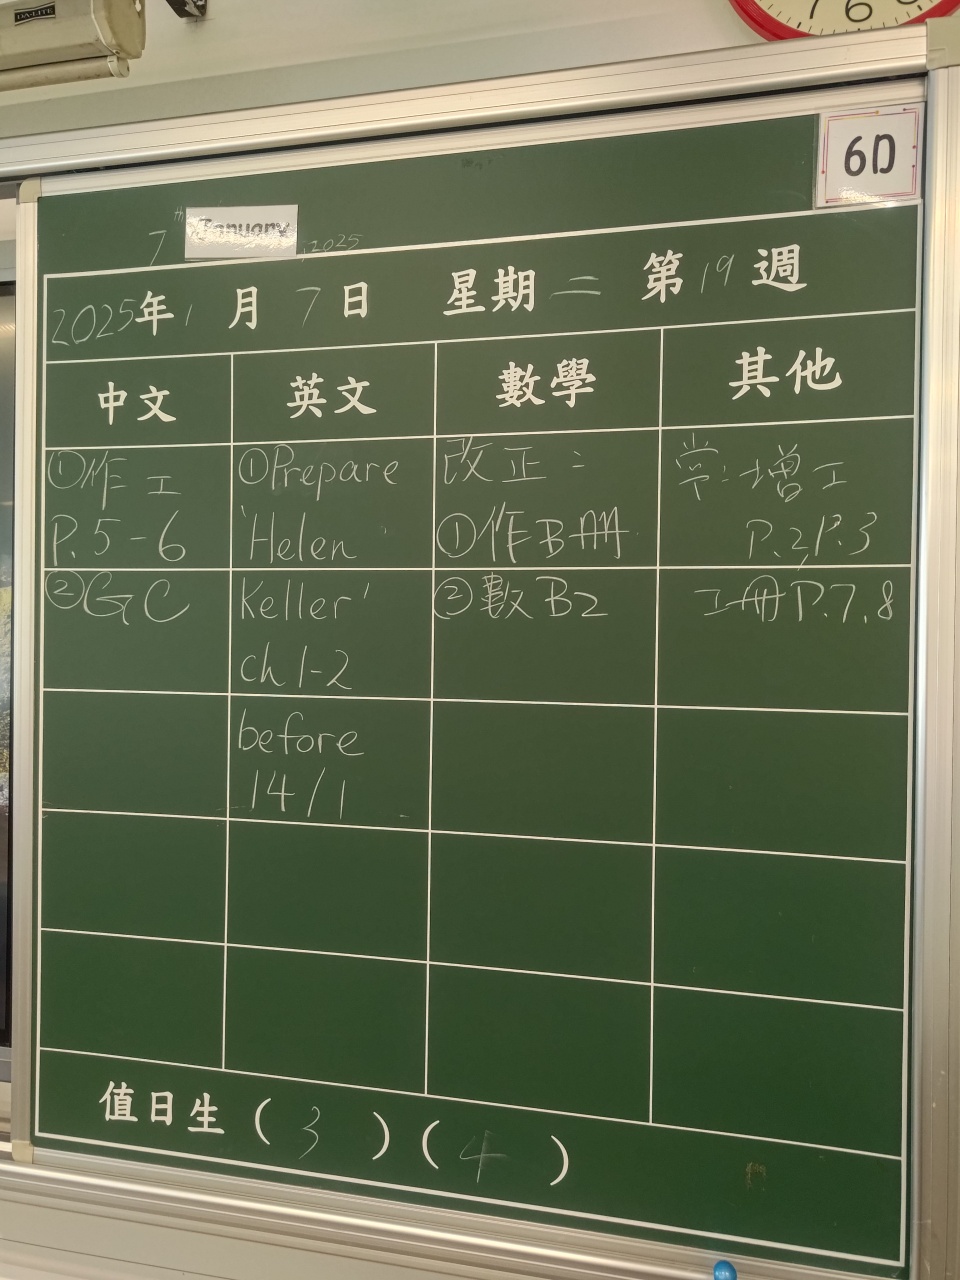 DA-LITE
7 6
6D
7th January, 2025
2025年1月7日 星期二 第19週
中文 英文 數學 其他
①作工
P.5-6
②GC
①Prepare
'Helen
Keller'
ch 1-2
before
14/1
改正:
①作B冊
②數B2
常:增工
P.2,P.3
工冊P.7,8
值日生(3)(4)